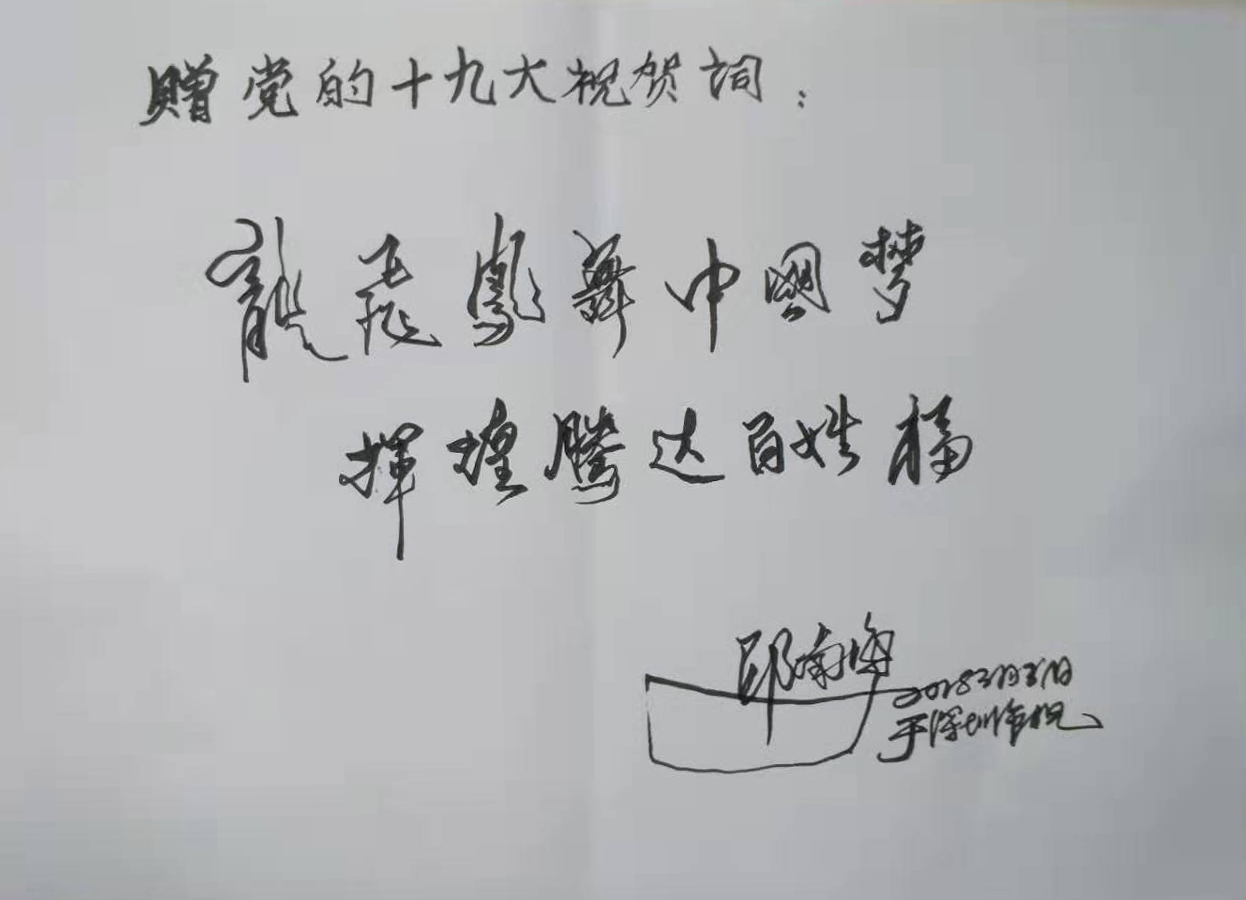 赠党的十九大祝贺词：
龍飛鳳舞中國梦
揮煌腾达百姓福
邱南海
2018
于深圳